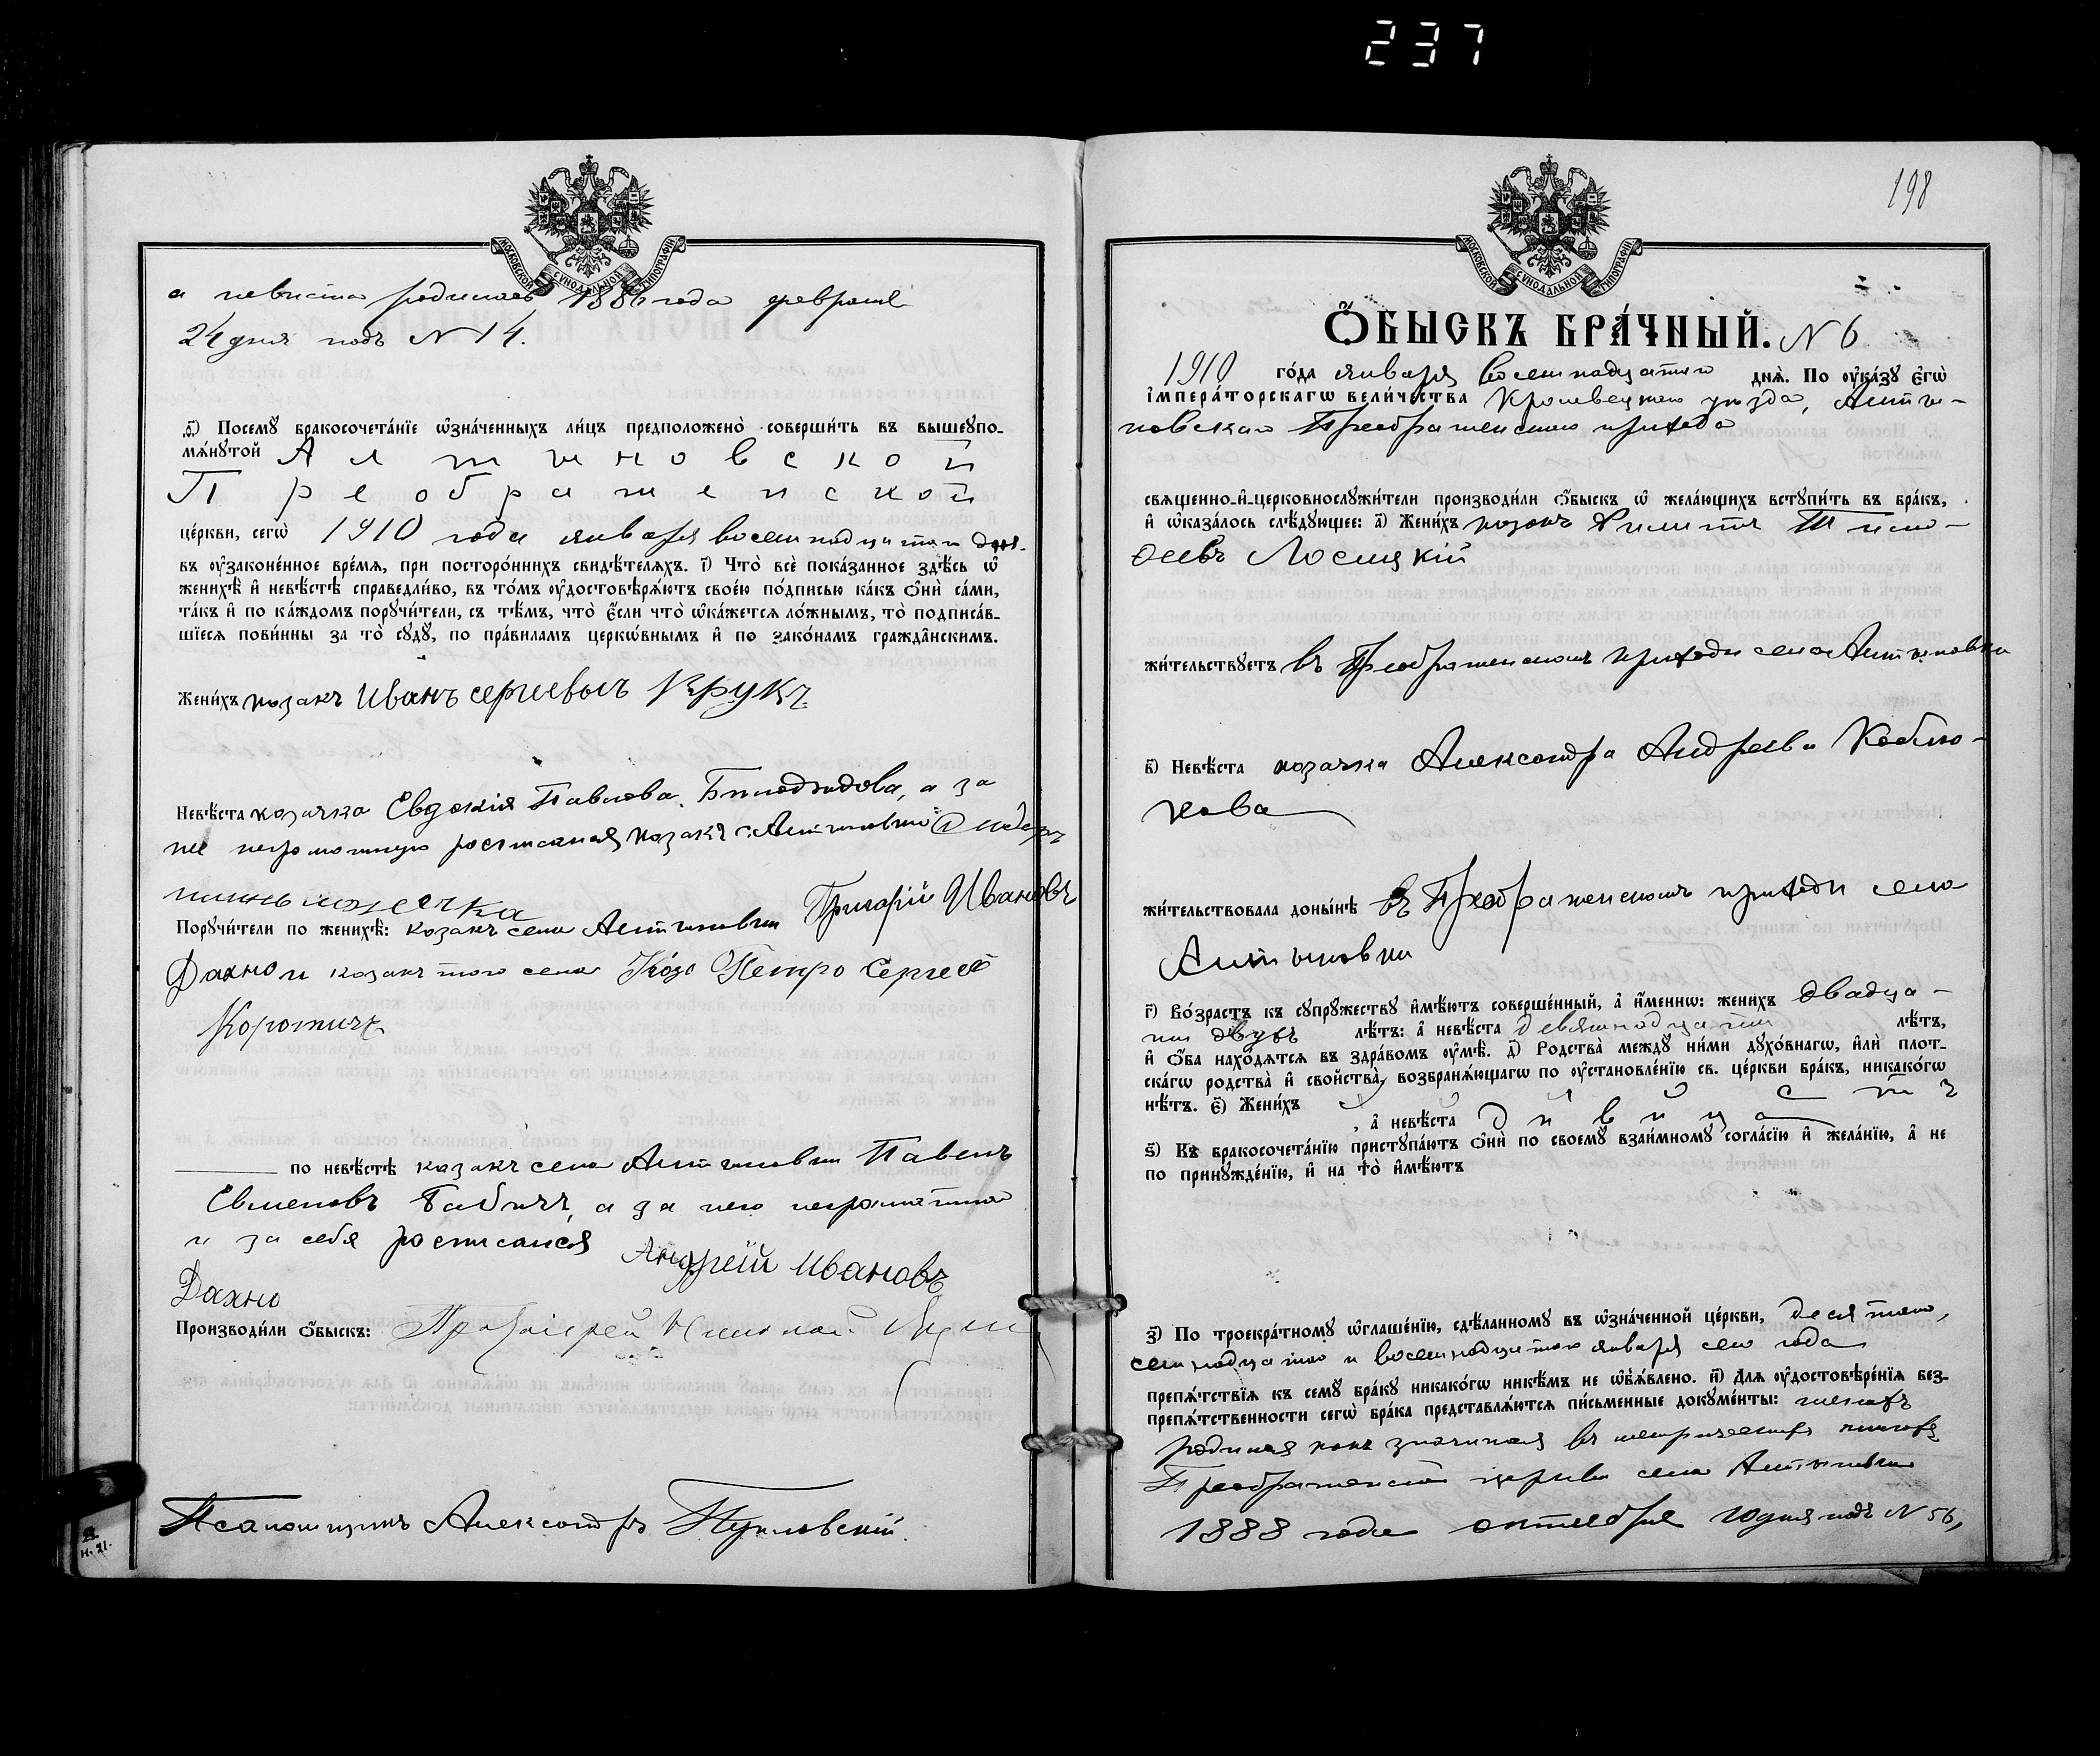 237
МОСКОВСКОЙ СУНОДАЛЬНОЙ ТИПОГРАФІИ
а невѣста родилась 1886 года февраля
24 дня подъ N 14.
Посемꙋ̀ бракосочета́нїе ѡ҆зна́ченныхъ ли́цъ предположено̀ соверши́ть въ вышеꙋпо-
мѧ́нꙋтой Алтыновской
Преображенской
це́ркви, сегѡ̀ 1910 года января восемнадцатаго дня.
въ ᲂу҆зако́ненное вре́мѧ, при посторо́ннихъ свидѣ́телѧхъ. і҃) Что̀ всѐ пока́занное здѣ́сь ѡ҆
женихѣ̀ и҆ невѣ́стѣ справедли́во, въ то́мъ ᲂу҆достовѣрѧ́ютъ свое́ю по́дписью ка́къ ѻ҆нѝ са́ми,
та́къ и҆ по ка́ждомъ порꙋчи́тели, съ тѣ́мъ, что̀ є҆́сли что̀ ѡ҆ка́жетсѧ ло́жнымъ, то̀ подписа́в-
шїесѧ пови́нны за то̀ сꙋдꙋ̀, по пра́виламъ церкѡ́внымъ и҆ по зако́намъ гражда́нскимъ.
Жени́хъ козакъ Иванъ Сергіевъ Крукъ
Невѣ́ста козачка Евдокія Павлова Билодидова, а за
нее неграмотную росписался козакъ с. Алтыновки
Порꙋчи́тели по женихѣ̀: козакъ села Алтыновки Григорій Ивановъ
Дахно и козакъ того села Петро Сергеев
Коротичъ
по невѣ́стѣ казакъ села Алтыновки Павелъ
Евменовъ Бабичъ, а за него неграмотнаго
и за себя росписался Андрей Ивановъ
Дахно
Производи́ли ѻ҆́быскъ: Протоіерей Николай
Псаломщикъ Александръ Пукловскій.
198
Ѻ҆́БЫСКЪ БРА́ЧНЫЙ. N 6
1910 го́да января восемнадцатаго днѧ̀. По ᲂу҆ка́зꙋ є҆гѡ̀
і҆мпера́торскагѡ вели́чества Кролевецкаго уѣзда, Алты-
новскаго Преображенскаго прихода
свѧще́нно-и҆-церковнослꙋжи́тели производи́ли ѻ҆́быскъ ѡ҆ жела́ющихъ встꙋпи́ть въ бра́къ,
и҆ ѡ҆каза́лось слѣ́дꙋющее: а҃) Жени́хъ козакъ Филиппъ Тимо-
ѳеевъ Лосицкій
жи́тельствꙋетъ въ Преображенскомъ приходѣ села Алтыновки
в҃) Невѣ́ста козачка Александра Андреева Коблю-
кова
жи́тельствовала доны́нѣ въ Преображенскомъ приходѣ села
Алтыновки
г҃) Во́зрастъ къ сꙋпрꙋ́жествꙋ и҆мѣ́ютъ соверше́нный, а҆ и҆́меннѡ: жени́хъ двадца-
ти двухъ лѣ́тъ: а҆ невѣ́ста девятнадцати лѣ́тъ,
и҆ ѻ҆́ба нахо́дѧтсѧ въ здра́вомъ ᲂу҆мѣ̀. д҃) Родства̀ междꙋ ни́ми дꙋхо́внагѡ, и҆лѝ плот-
ска́гѡ родства̀ и҆ свойства̀, возбранѧ́ющагѡ по ᲂу҆становле́нїю св. це́ркви бра́къ, никако́гѡ
нѣ́тъ. є҃) Жени́хъ холостъ
, а҆ невѣ́ста дѣвица
ѕ҃) Къ бракосочета́нїю пристꙋпа́ютъ ѻ҆нѝ по своемꙋ̀ взаи́мномꙋ согла́сїю и҆ жела́нїю, а҆ не
по принꙋжде́нїю, и҆ на то̀ и҆мѣ́ютъ
з҃) По троекра́тномꙋ ѡ҆глаше́нїю, сдѣ́ланномꙋ въ ѡ҆зна́ченной це́ркви, десятаго,
семнадцатаго и восемнадцатаго января сего года
препѧ́тствїѧ къ семꙋ̀ бра́кꙋ никако́гѡ никѣ́мъ не ѡ҆б̾ѧ́влено. и҃) Длѧ ᲂу҆достовѣре́нїѧ без-
препѧ́тственности сегѡ̀ бра́ка представлѧ́ютсѧ пи́сьменные докꙋме́нты: женихъ
родился какъ значился въ метрическихъ книгахъ
Преображенской церкви села Алтыновки
1888 года октября 10 дня подъ N 56,